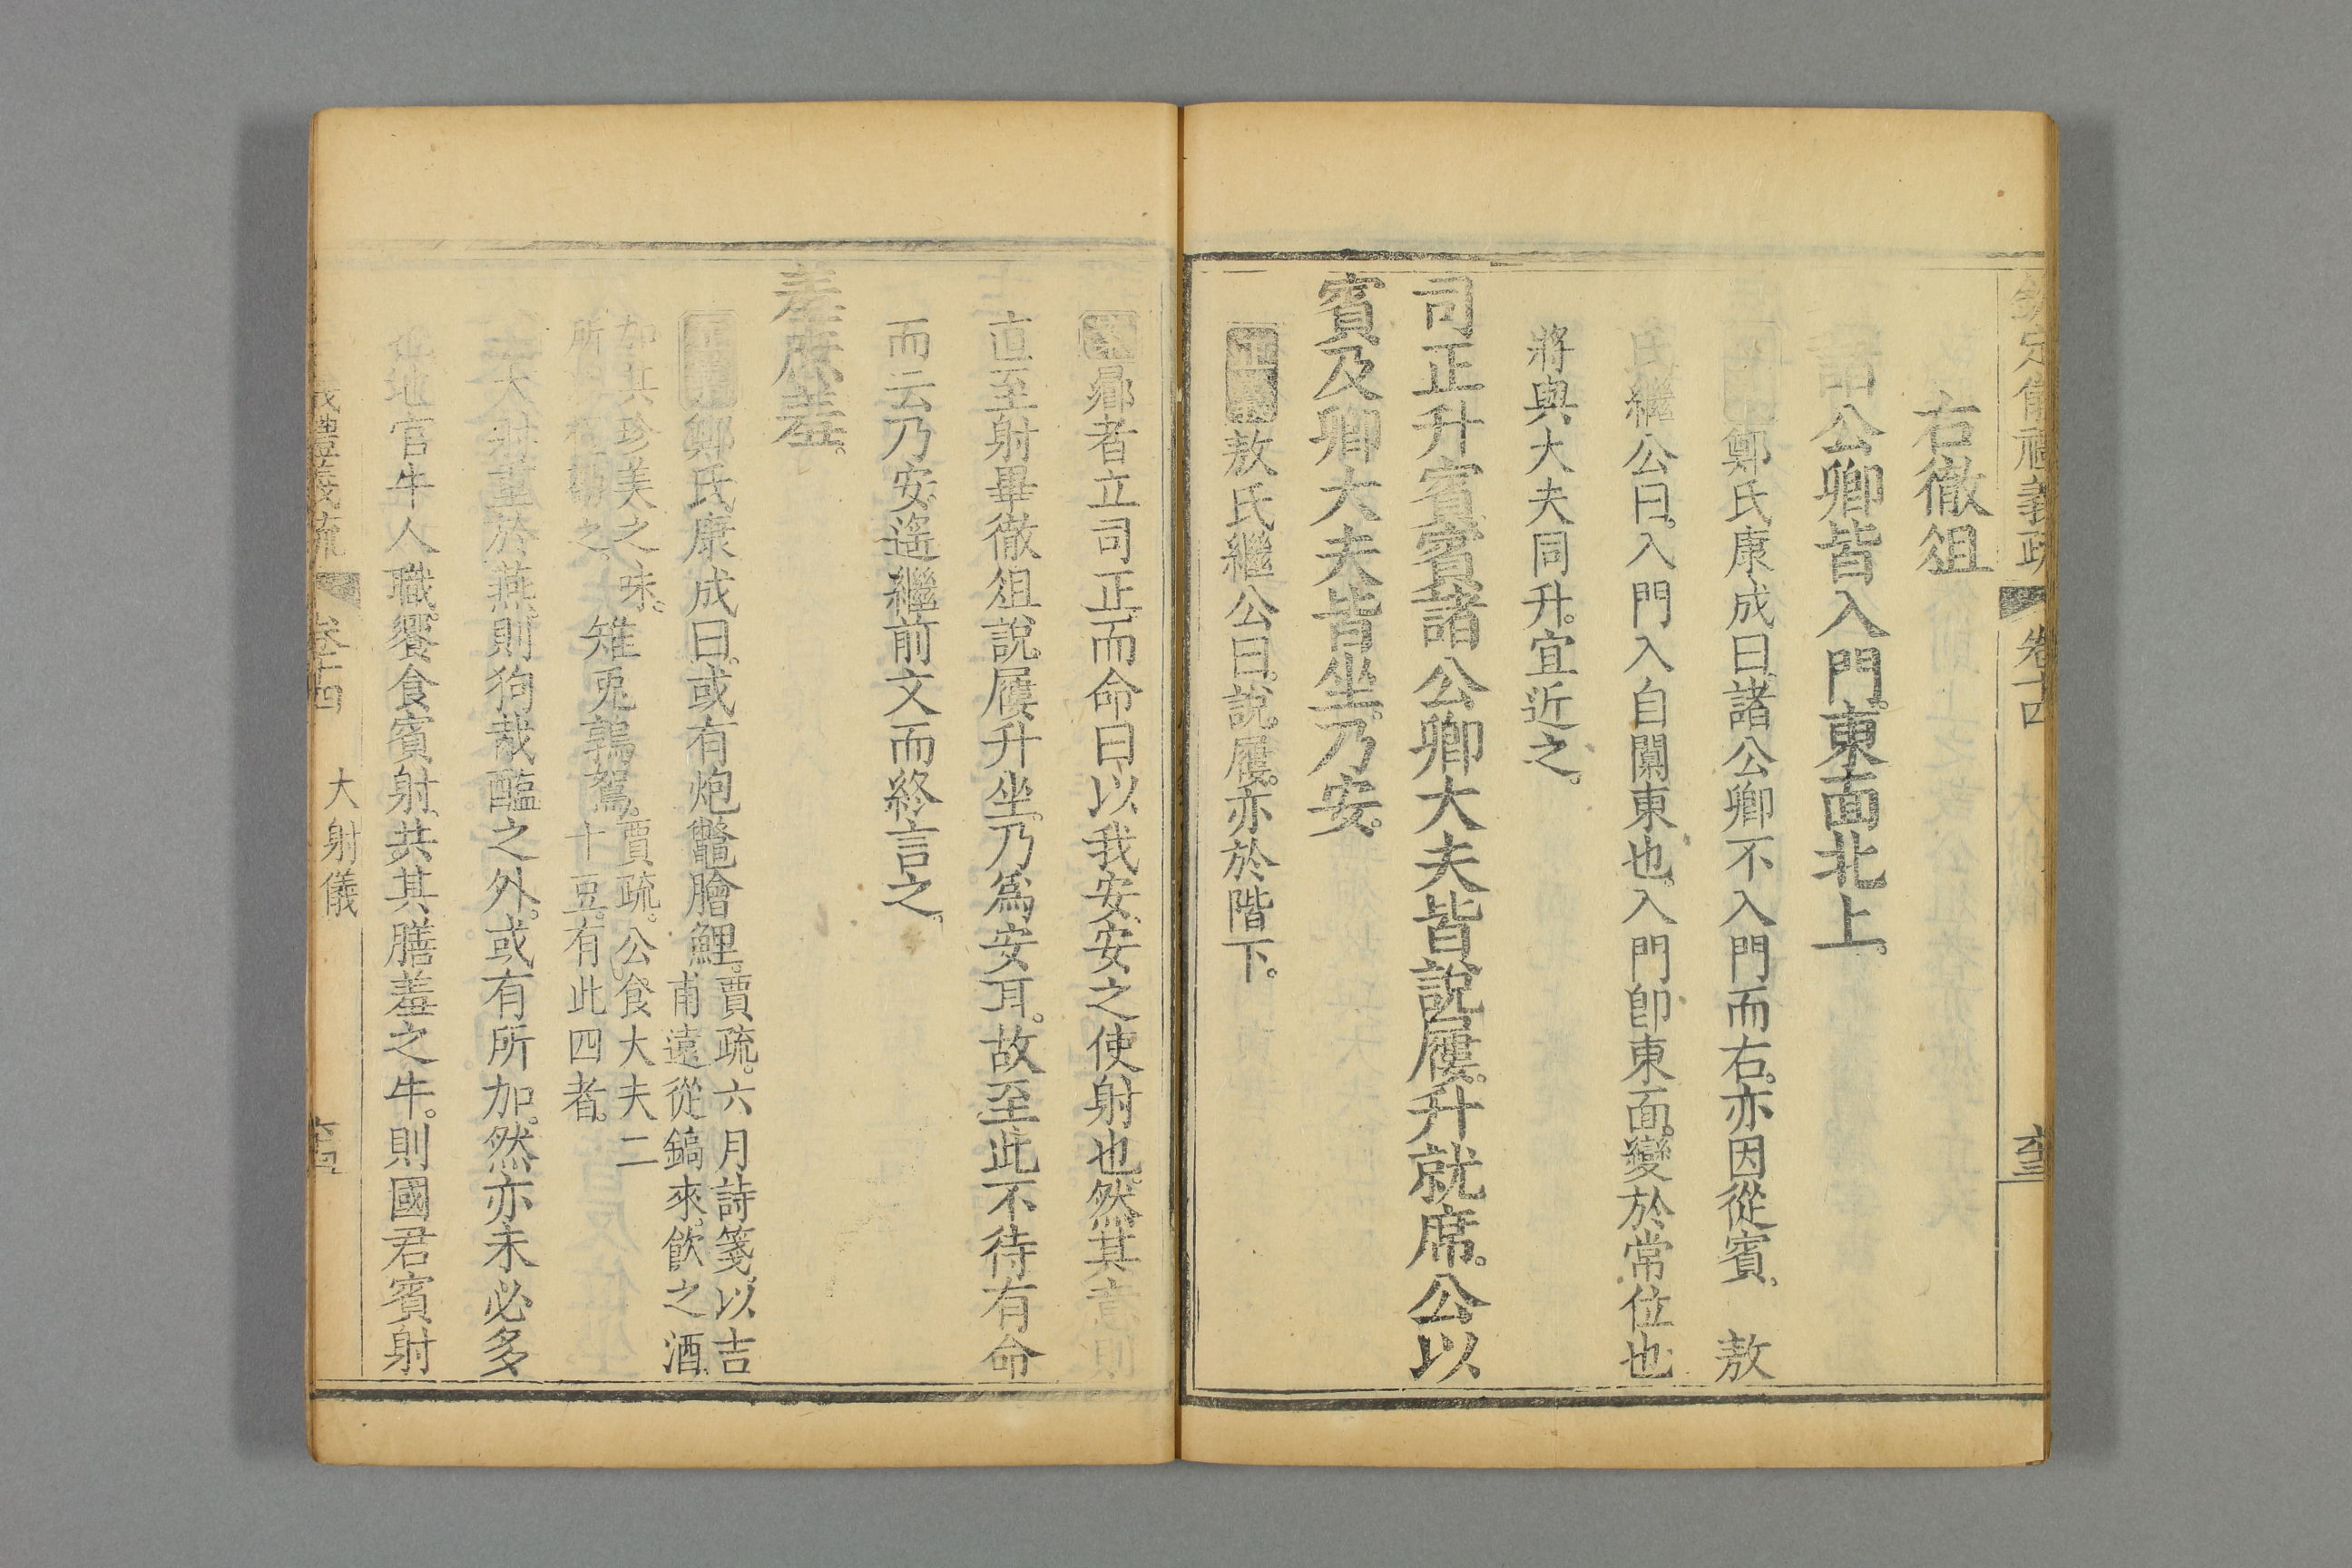 欽定儀禮義疏 卷十四 
右徹俎
諸公卿皆入門東面北上。
鄭氏康成曰。諸公卿不入門而右。亦因從賓。 敖
氏繼公曰。入門入自闑東也。入門卽東面。變於常位也
將與大夫同升。宜近之。
司正升賓賓諸公卿大夫皆說屨。升就席。公以
賓及卿大夫皆坐。乃安。
正義敖氏繼公曰。說屨。亦於階下。
案鄉者立司正而命曰以我安。安之使射也。然其意則
直至射畢徹俎說屨升坐。乃爲安耳。故至此不待有命
而云乃安。遙繼前文而終言之。
羞庶羞。
正義鄭氏康成曰。或有炮鼈膾鯉。賈疏。六月詩箋以吉
甫遠從鎬來。飲之酒。
加其珍美之味。
所以極勸之。
雉兎鶉鴽。賈疏。公食大夫二
十豆。有此四者。
大射重於燕。則狗胾醢之外。或有所加。然亦未必多
也。地官牛人職。饗食賓射。共其膳羞之牛。則國君賓射
儀禮義疏 卷十四 大射儀